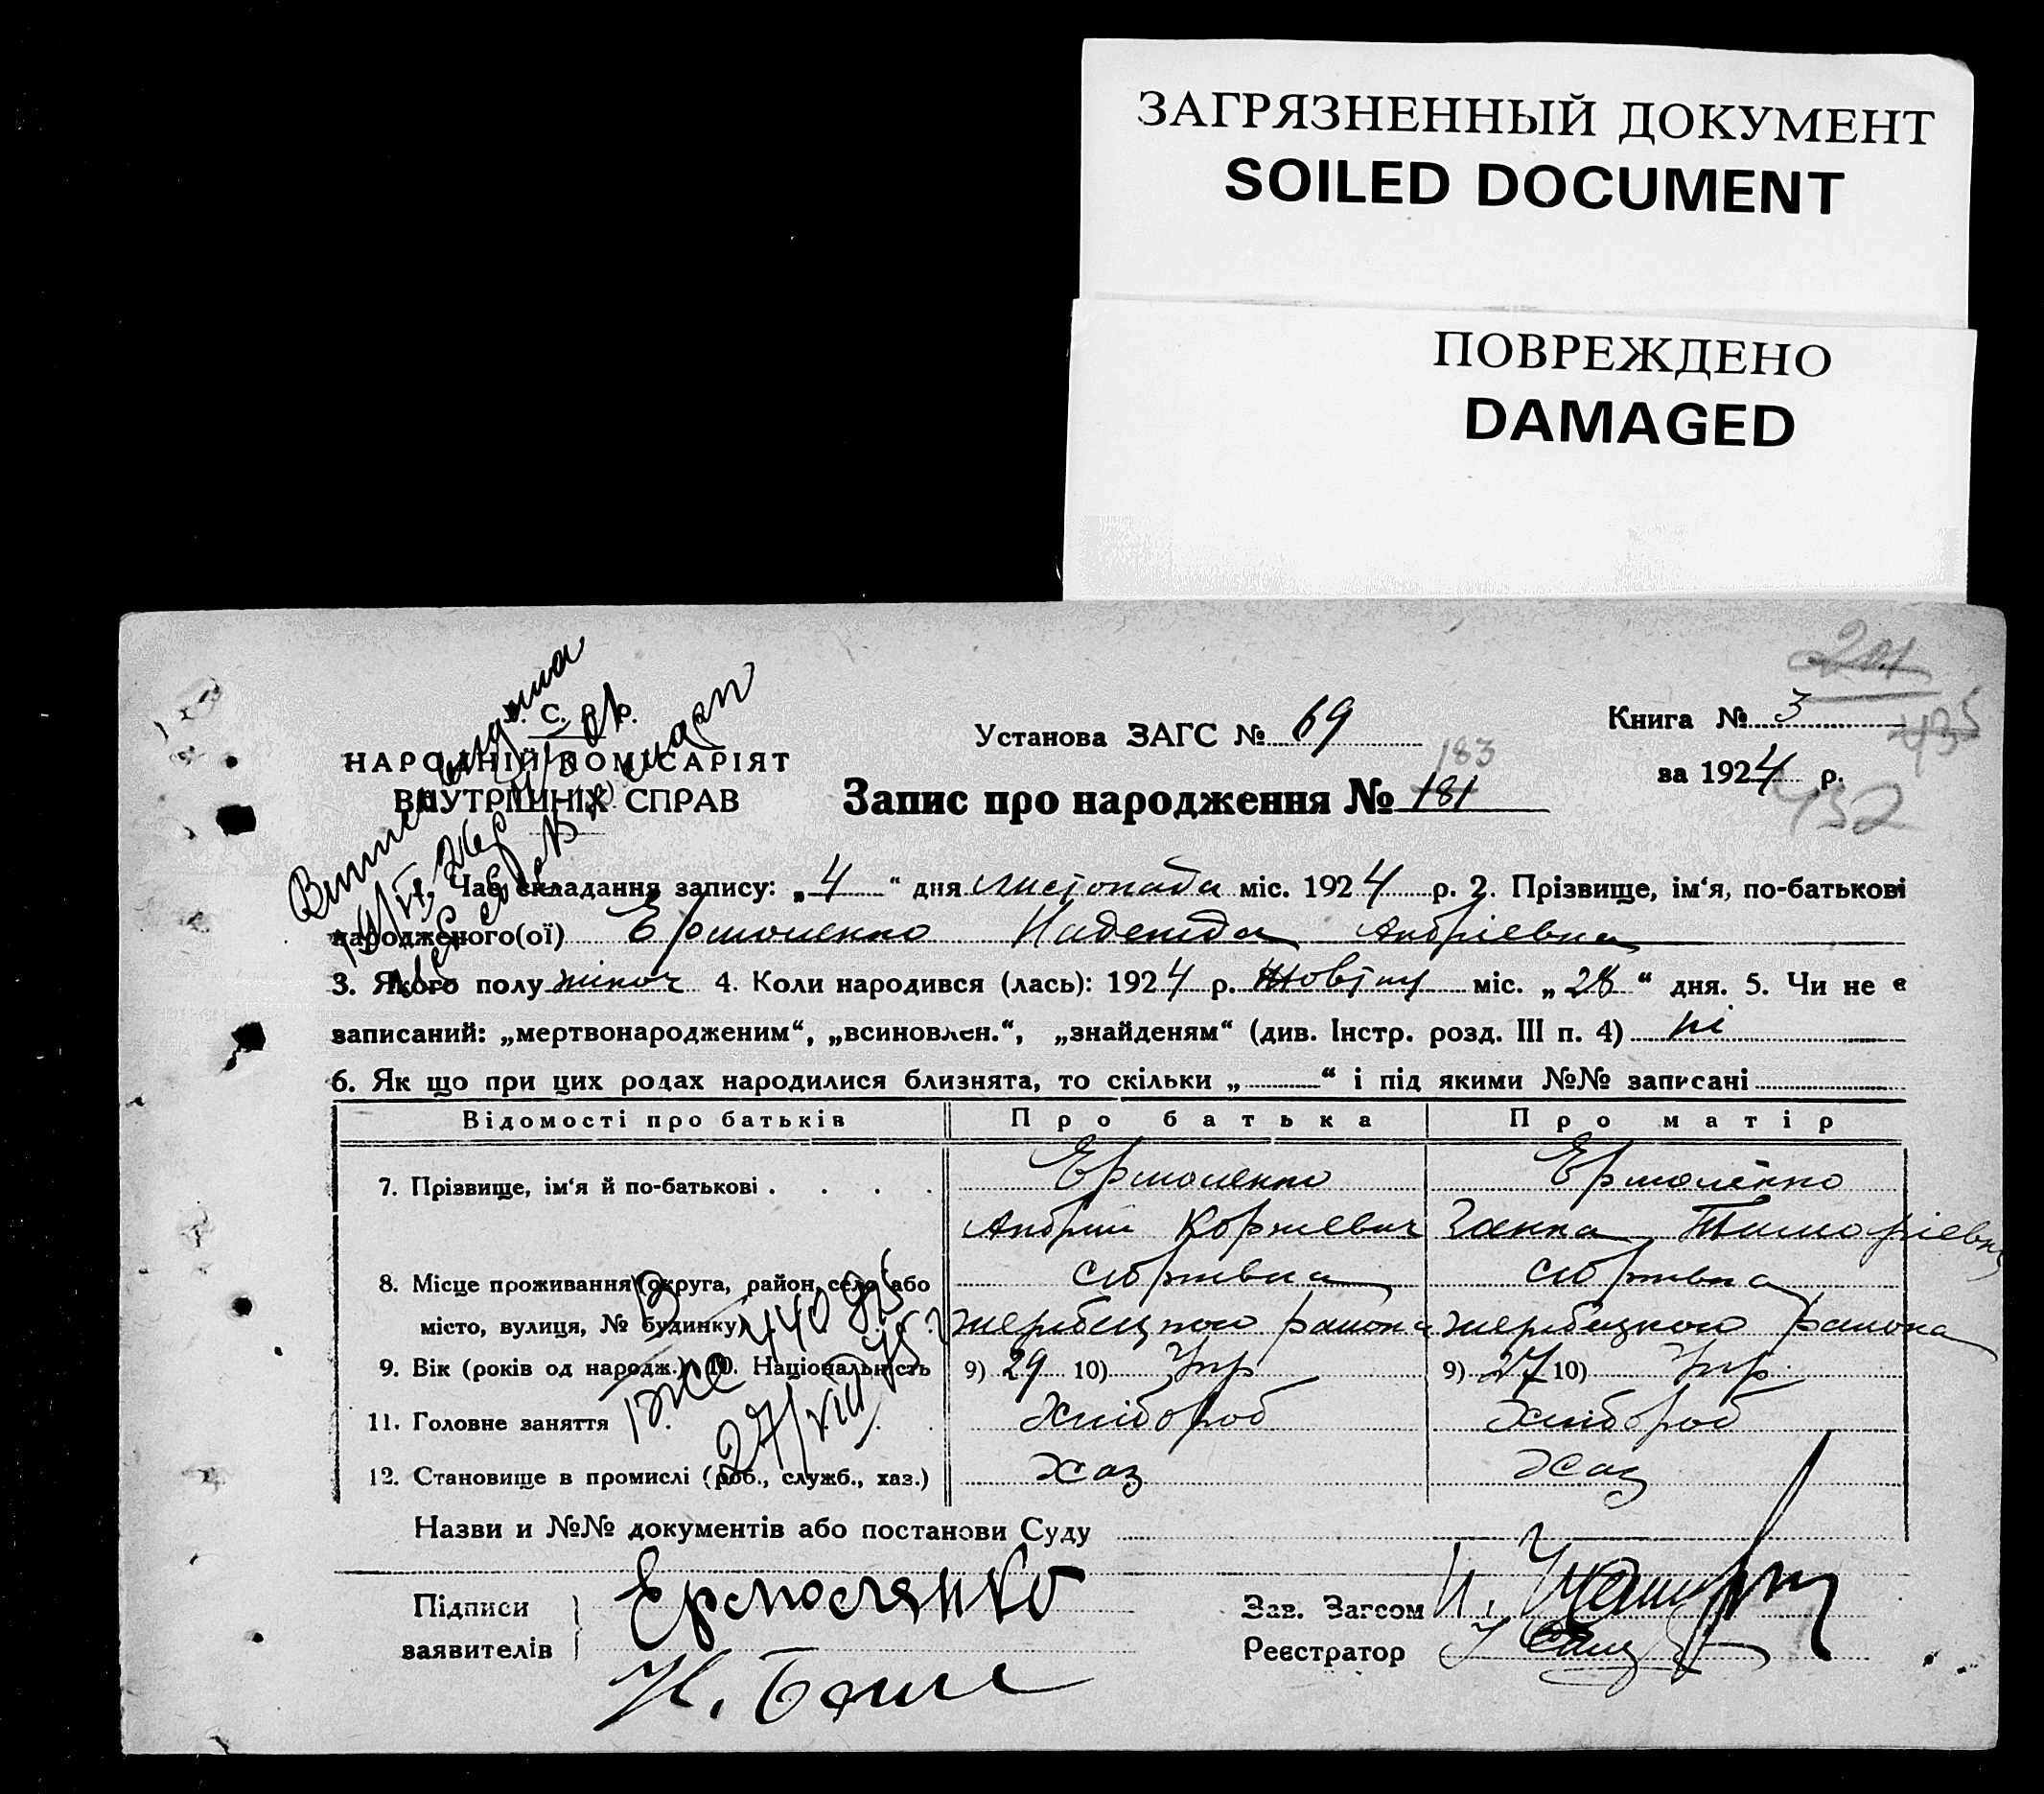 ЗАГРЯЗНЕННЫЙ ДОКУМЕНТ
SOILED DOCUMENT
ПОВРЕЖДЕНО
DAMAGED
201
435
432
У. С. Р. Р.
НАРОДНІЙ КОМІСАРІЯТ
ВНУТРІШНІХ СПРАВ
Установа ЗАГС № 69
Книга № 3
за 1924 р.
183
Запис про народження № 181
1. Час складання запису: „4“ дня листопада міс. 1924 р. 2. Прізвище, ім‘я, по-батькові
народженого(ої) Ермоленко Надежда Андріевна
3. Якого полу жіноч 4. Коли народився (лась): 1924 р. Жовтня міс. „28“ дня. 5. Чи не є
записаний: „мертвонародженим“, „всиновлен.“, „знайденям“ (див. Інстр. розд. III п. 4) ні
6. Як що при цих родах народилися близнята, то скільки „ “ і під якими №№ записані
Відомості про батьків Про батька Про матір
7. Прізвище, ім‘я й по-батькові . . . . Ермоленко Ермоленко
Андрій Ганна
8. Місце проживання (округа, район, село або
місто, вулиця, № будинку) района района
9. Вік (років од народж.) 10. Національність 9) 29 10) Укр 9) 27 10) Укр.
11. Головне заняття Хлібороб Хлібороб
12. Становище в промислі (роб., служб., хаз.) Хаз Хаз
Назви и №№ документів або постанови Суду
Підписи
заявителів
Ермоленко
Зав. Загсом
Реєстратор
27/VIII 45